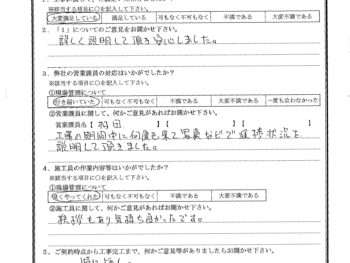 ※該当する項目に○を記入して下さい。
大変満足している 満足している 可もなく不可もなく 不満である 大変不満である
2.「1」についてのご意見をお聞かせ下さい。
詳しく説明して頂きました。
3. 弊社の営業課員の対応はいかがでしたか？
※該当する項目に○を記入して下さい。
①現場管理について
行き届いていた 可もなく不可もなく 不満である 大変不満である 一度も会わなかった
②営業課員に関して、何かご意見があればお聞かせ下さい。
営業課員名【 村田 】
工事の期間中に何度も来て写真などで進捗状況を
説明して頂きました。
4. 施工員の作業内容等はいかがでしたか？
※該当する項目に○を記入して下さい。
①現場管理について
良くやってくれた 可もなく不可もなく 不満である 大変不満である
②施工員に関して、何かご意見があればお聞かせ下さい。
挨拶もあり気持ち良かったです。
5. ご契約時点から工事完工まで、何かご意見等がありましたらお聞かせ下さい。